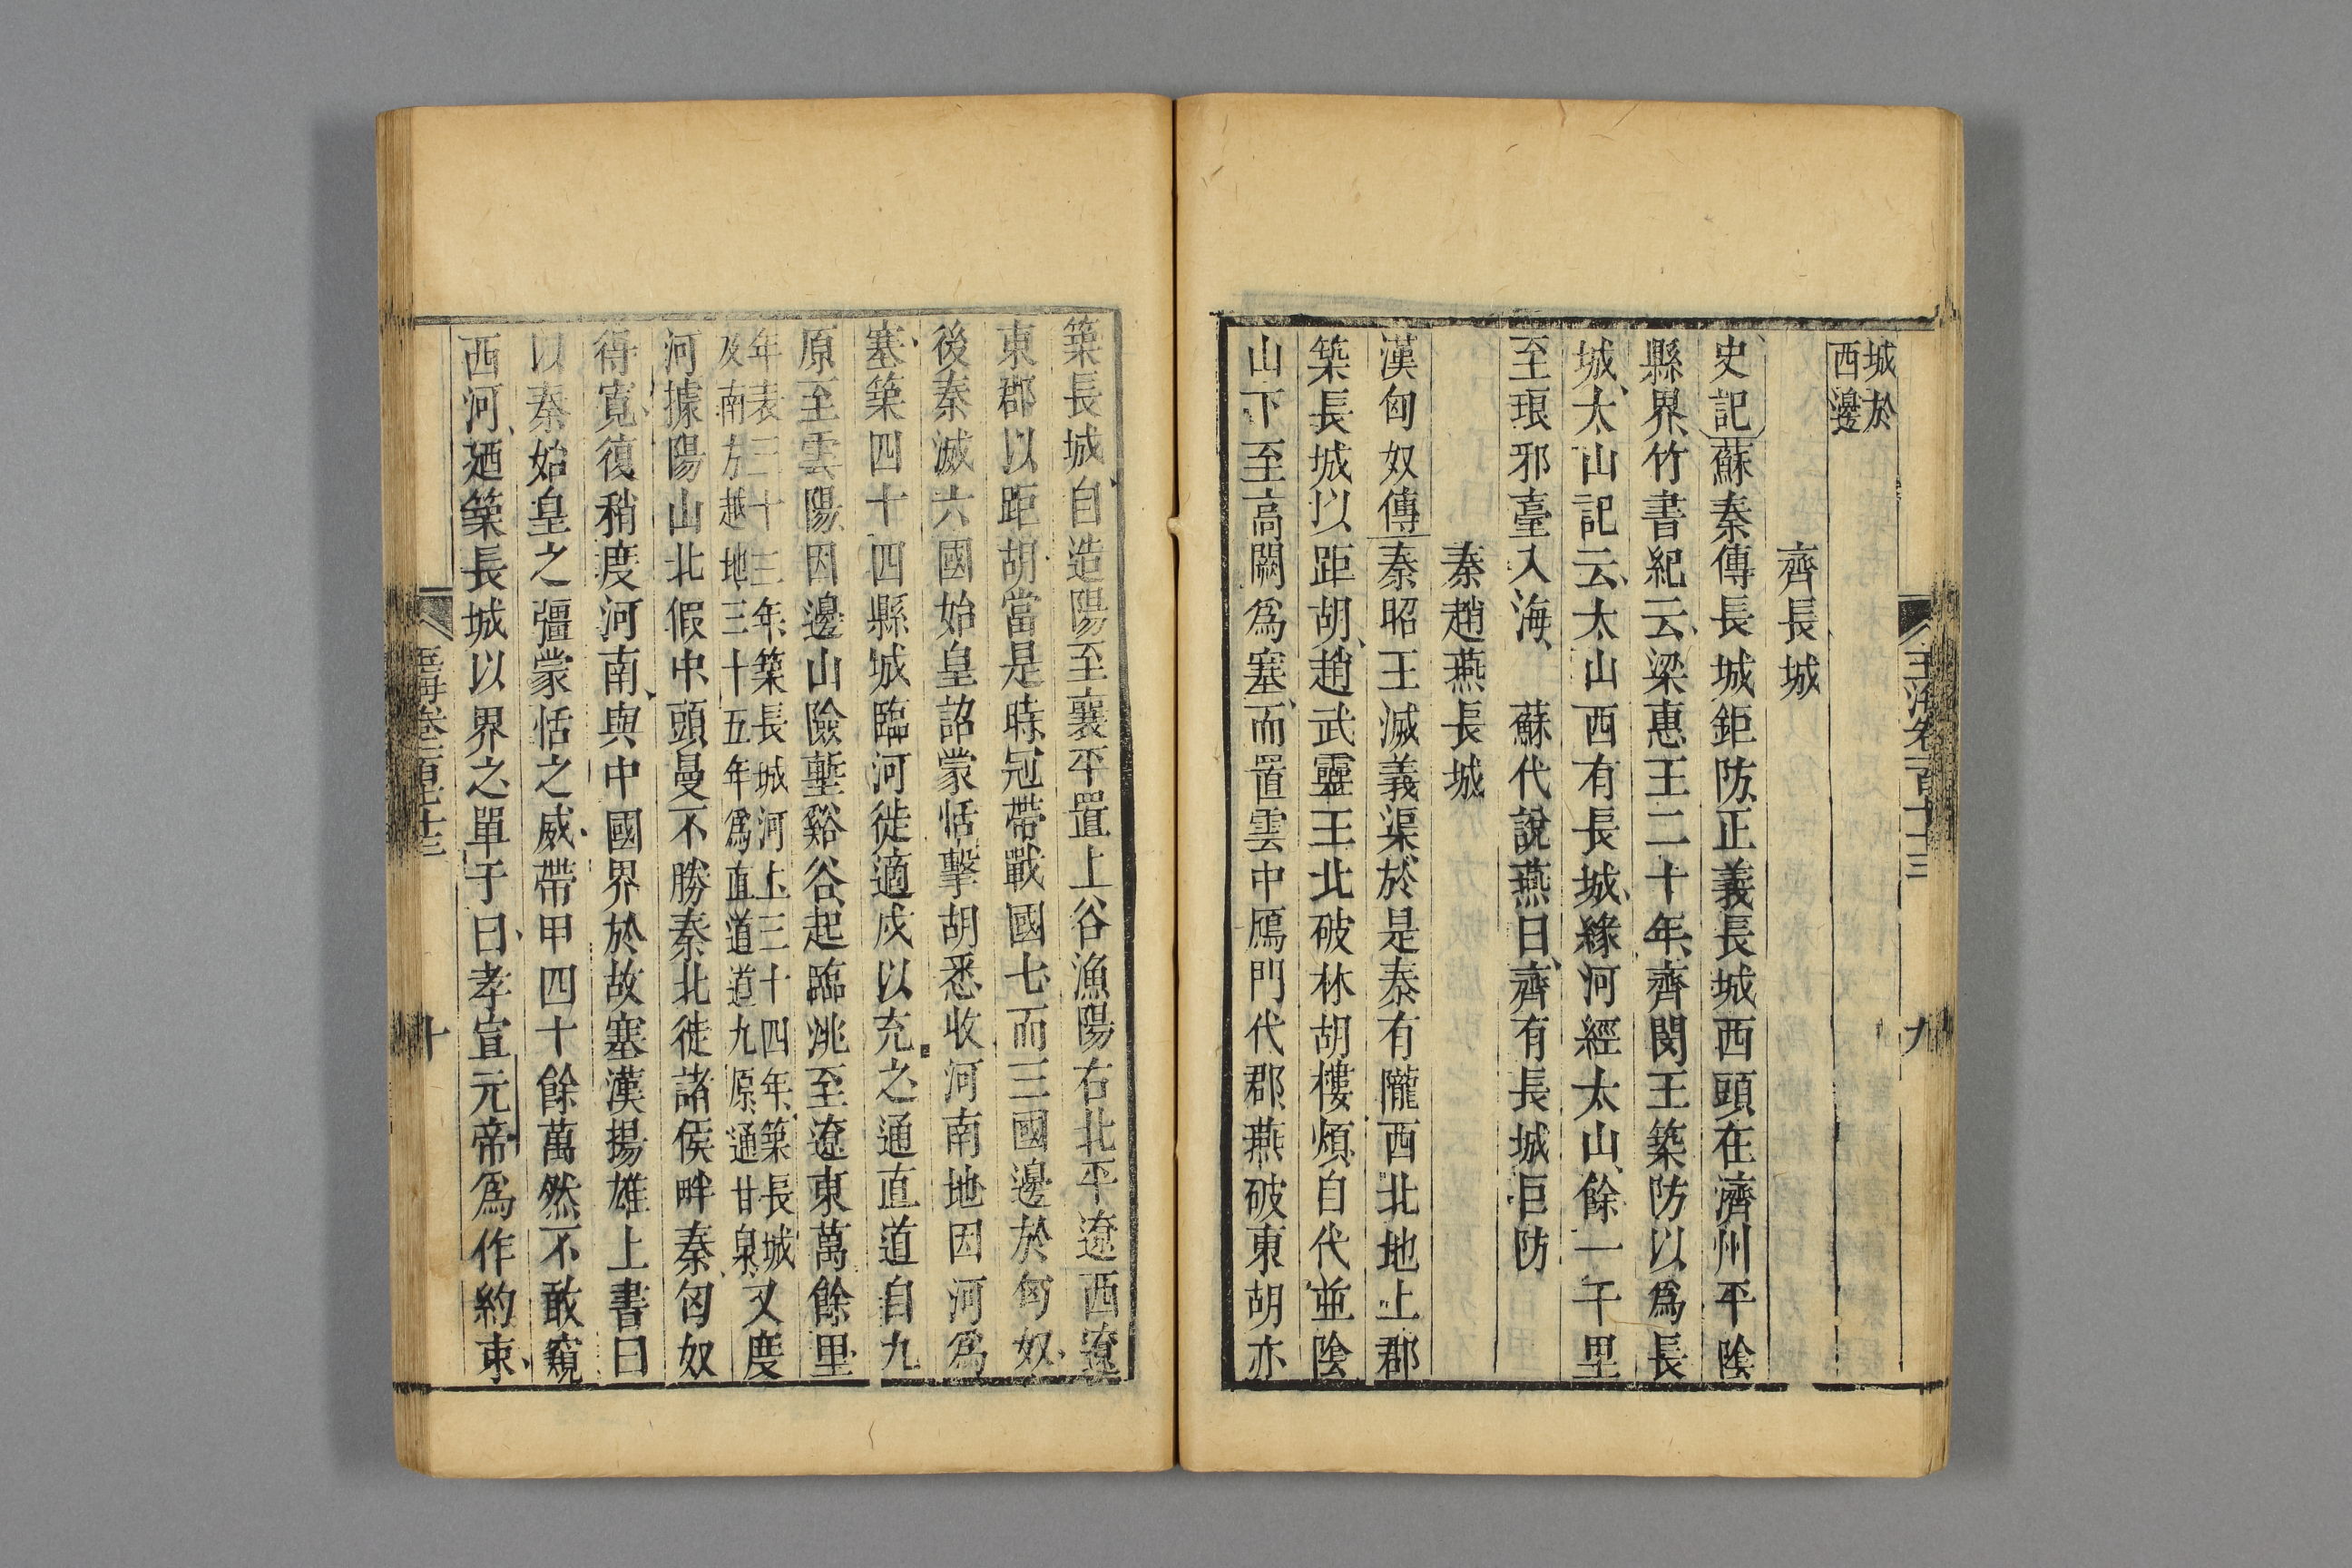 城於
西邊
齊長城
史記蘇秦傳長城鉅防正義長城西頭在濟州平陰
縣界竹書紀云梁惠王二十年齊閔王築防以爲長
城太山記云太山西有長城緣河經太山餘一千里
至琅邪臺入海　蘇代說燕曰齊有長城巨防
秦趙燕長城
漢匈奴傳秦昭王滅義渠於是秦有隴西北地上郡
築長城以距胡趙武靈王北破林胡樓煩自代並陰
山下至高闕爲塞而置雲中鴈門代郡燕破東胡亦
玉海卷一百七十三
九
築長城自造陽至襄平置上谷漁陽右北平遼西遼
東郡以距胡當是時冠帶戰國七而三國邊於匈奴
後秦滅六國始皇詔蒙恬擊胡悉收河南地因河爲
塞築四十四縣城臨河徙適戍以充之通直道自九
原至雲陽因邊山險塹谿谷起臨洮至遼東萬餘里
年表三十三年築長城河上三十四年築長城
及南方越地三十五年爲直道道九原通甘泉又度
河據陽山北假中頭曼不勝秦北徙諸侯畔秦匈奴
得寬復稍度河南與中國界於故塞漢揚雄上書曰
以秦始皇之彊蒙恬之威帶甲四十餘萬然不敢窺
西河廼築長城以界之單于曰孝宣元帝爲作約束
玉海卷一百七十三
十